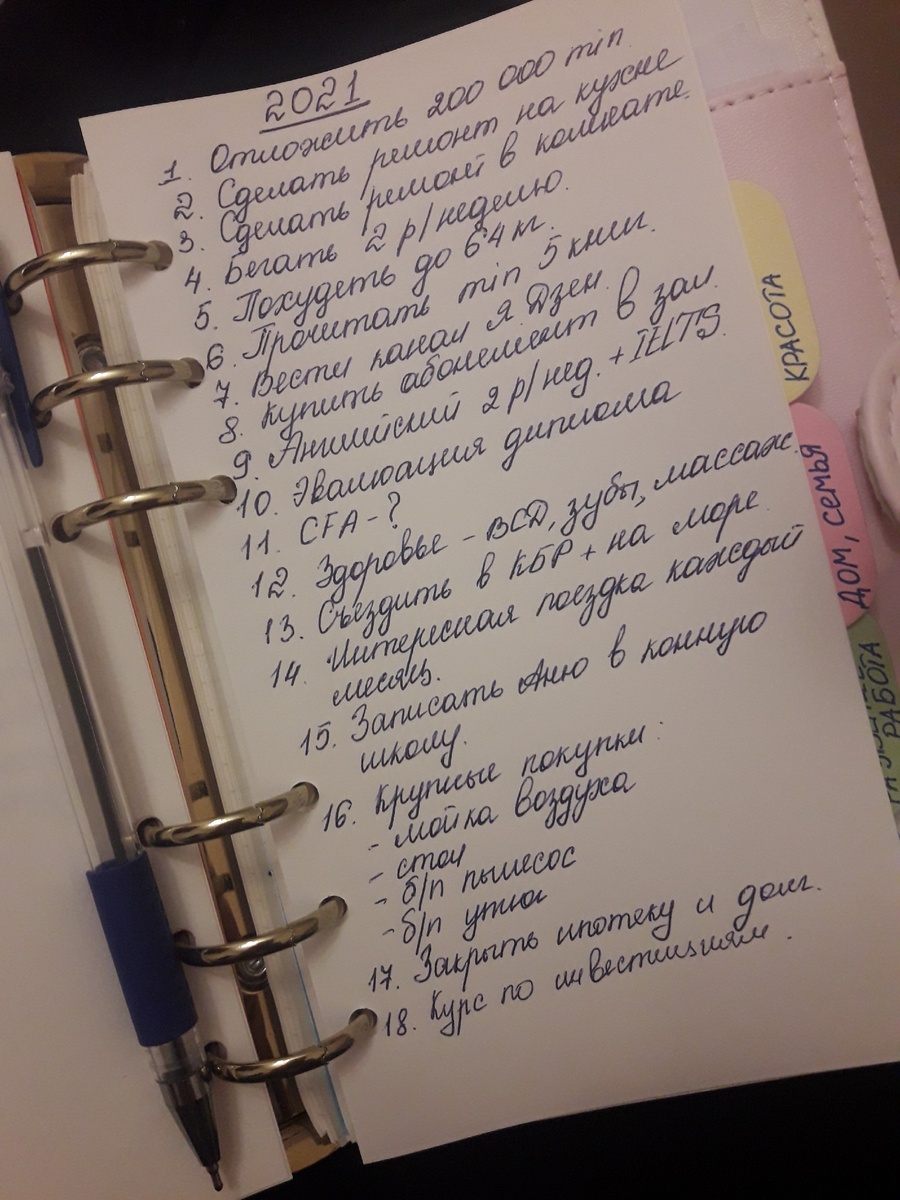 2021
1. Отложить 200 000 min
2. Сделать ремонт на кухне
3. Сделать ремонт в комнате.
4. Бегать 2 р/неделю.
5. Похудеть до 64 кг.
6. Прочитать min 5 книг.
7. Вести канал Я.Дзен.
8. Купить абонемент в зал.
9. Английский 2 р/нед. + IELTS.
10. Эвалюация диплома
11. CFA - ?
12. Здоровье - ВСД, зубы, массаж.
13. Съездить в КБР + на море.
14. Интересная поездка каждый
месяц.
15. Записать Аню в конную
школу.
16. Крупные покупки:
- мойка воздуха
- стол
- б/п пылесос
- б/п утюг
17. Закрыть ипотеку и долг.
18. Курс по инвестициям.
КРАСОТА
ДОМ, СЕМЬЯ
РАБОТА